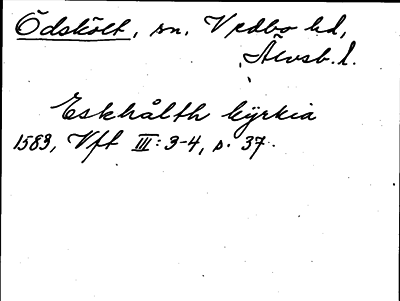 Ödskölt, sn. Vedbo hd,
Älvsb. l.
Eskhålth kyrkia
1583, Vft III: 3-4, s. 37.